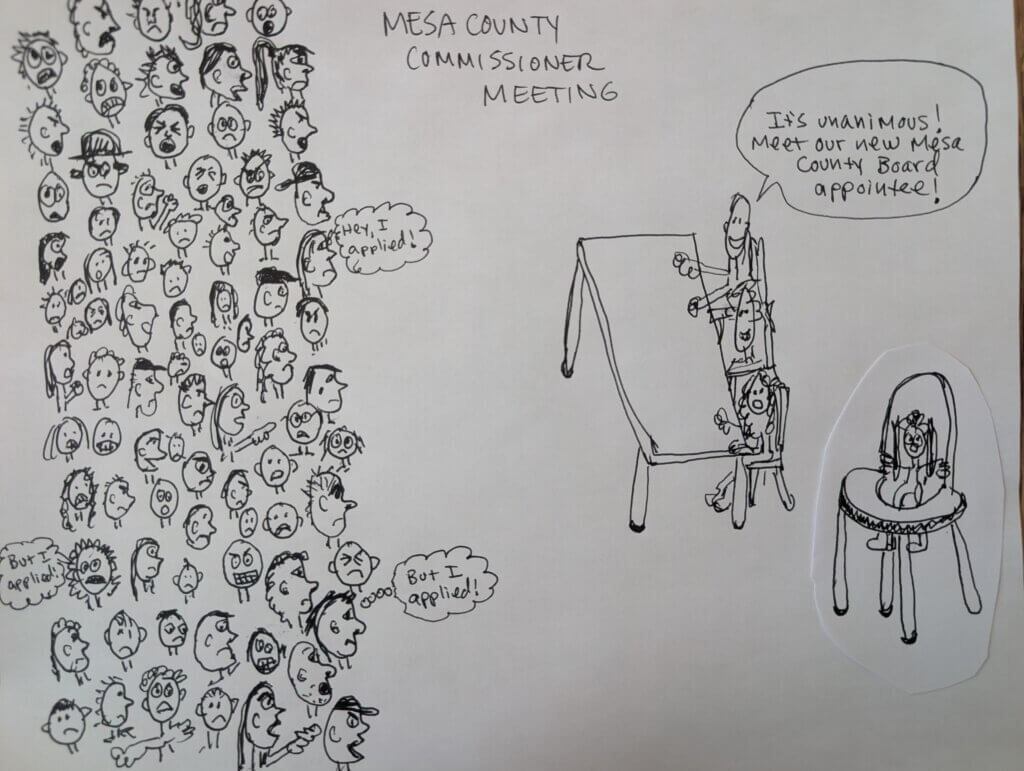 MESA COUNTY
COMMISSIONER
MEETING
It's unanimous!
Meet our new Mesa
County Board
appointee!
Hey, I
applied!
But I
applied!
But I
applied!